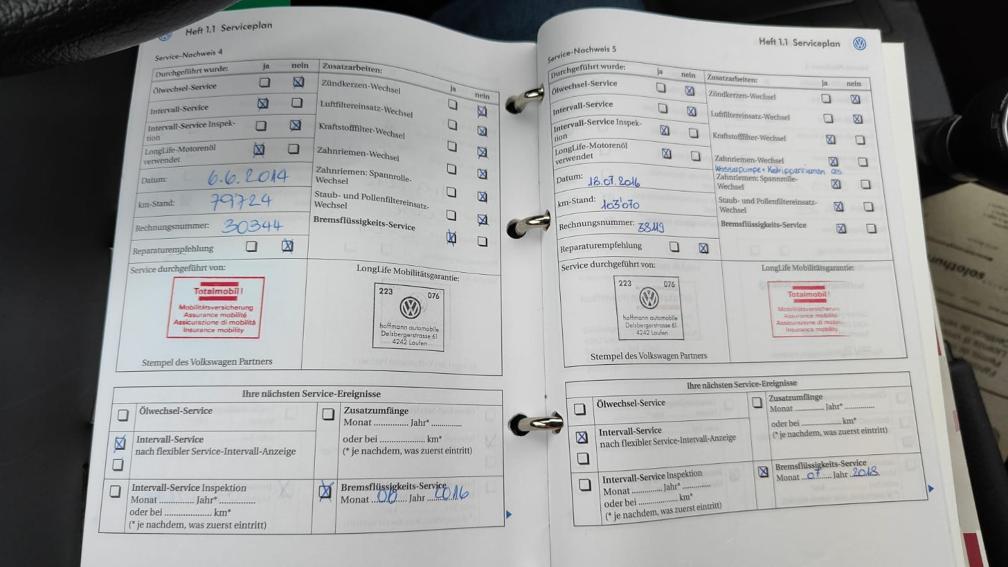 Heft 1.1 Serviceplan
Service-Nachweis 4
Durchgeführt wurde: ja nein
Ölwechsel-Service
Intervall-Service
Intervall-Service Inspek-
tion
LongLife-Motorenöl
verwendet
Datum: 6.6.2014
km-Stand: 79724
Rechnungsnummer: 30344
Reparaturempfehlung
Zusatzarbeiten: ja nein
Zündkerzen-Wechsel
Luftfiltereinsatz-Wechsel
Kraftstofffilter-Wechsel
Zahnriemen-Wechsel
Zahnriemen: Spannrolle-
Wechsel
Staub- und Pollenfiltereinsatz-
Wechsel
Bremsflüssigkeits-Service
Service durchgeführt von:
Totalmobil!
Mobilitätsversicherung
Assurance mobilité
Assicurazione di mobilità
Insurance mobility
Stempel des Volkswagen Partners
LongLife Mobilitätsgarantie:
223 076
hoffmann automobile
Delsbergerstrasse 61
4242 Laufen
Ihre nächsten Service-Ereignisse
Ölwechsel-Service
Intervall-Service
nach flexibler Service-Intervall-Anzeige
Intervall-Service Inspektion
Monat ............ Jahr* ............
oder bei ............ km*
(* je nachdem, was zuerst eintritt)
Zusatzumfänge
Monat ............ Jahr* ............
oder bei ............ km*
(* je nachdem, was zuerst eintritt)
Bremsflüssigkeits-Service
Monat Jahr 2016
Heft 1.1 Serviceplan
Service-Nachweis 5
Durchgeführt wurde: ja nein
Ölwechsel-Service
Intervall-Service
Intervall-Service Inspek-
tion
LongLife-Motorenöl
verwendet
Datum: 18.07.2016
km-Stand: 103'070
Rechnungsnummer: 38119
Reparaturempfehlung
Zusatzarbeiten: ja nein
Zündkerzen-Wechsel
Luftfiltereinsatz-Wechsel
Kraftstofffilter-Wechsel
Zahnriemen-Wechsel
Wasserpumpe + Keilrippenriemen
Zahnriemen: Spannrolle-
Wechsel
Staub- und Pollenfiltereinsatz-
Wechsel
Bremsflüssigkeits-Service
Service durchgeführt von:
223 076
hoffmann automobile
Delsbergerstrasse 61
4242 Laufen
Stempel des Volkswagen Partners
LongLife Mobilitätsgarantie:
Totalmobil!
Mobilitätsversicherung
Assurance mobilité
Assicurazione di mobilità
Insurance mobility
Ihre nächsten Service-Ereignisse
Ölwechsel-Service
Intervall-Service
nach flexibler Service-Intervall-Anzeige
Intervall-Service Inspektion
Monat ............ Jahr* ............
oder bei ............ km*
(* je nachdem, was zuerst eintritt)
Zusatzumfänge
Monat ............ Jahr* ............
oder bei ............ km*
(* je nachdem, was zuerst eintritt)
Bremsflüssigkeits-Service
Monat 07 Jahr 2018